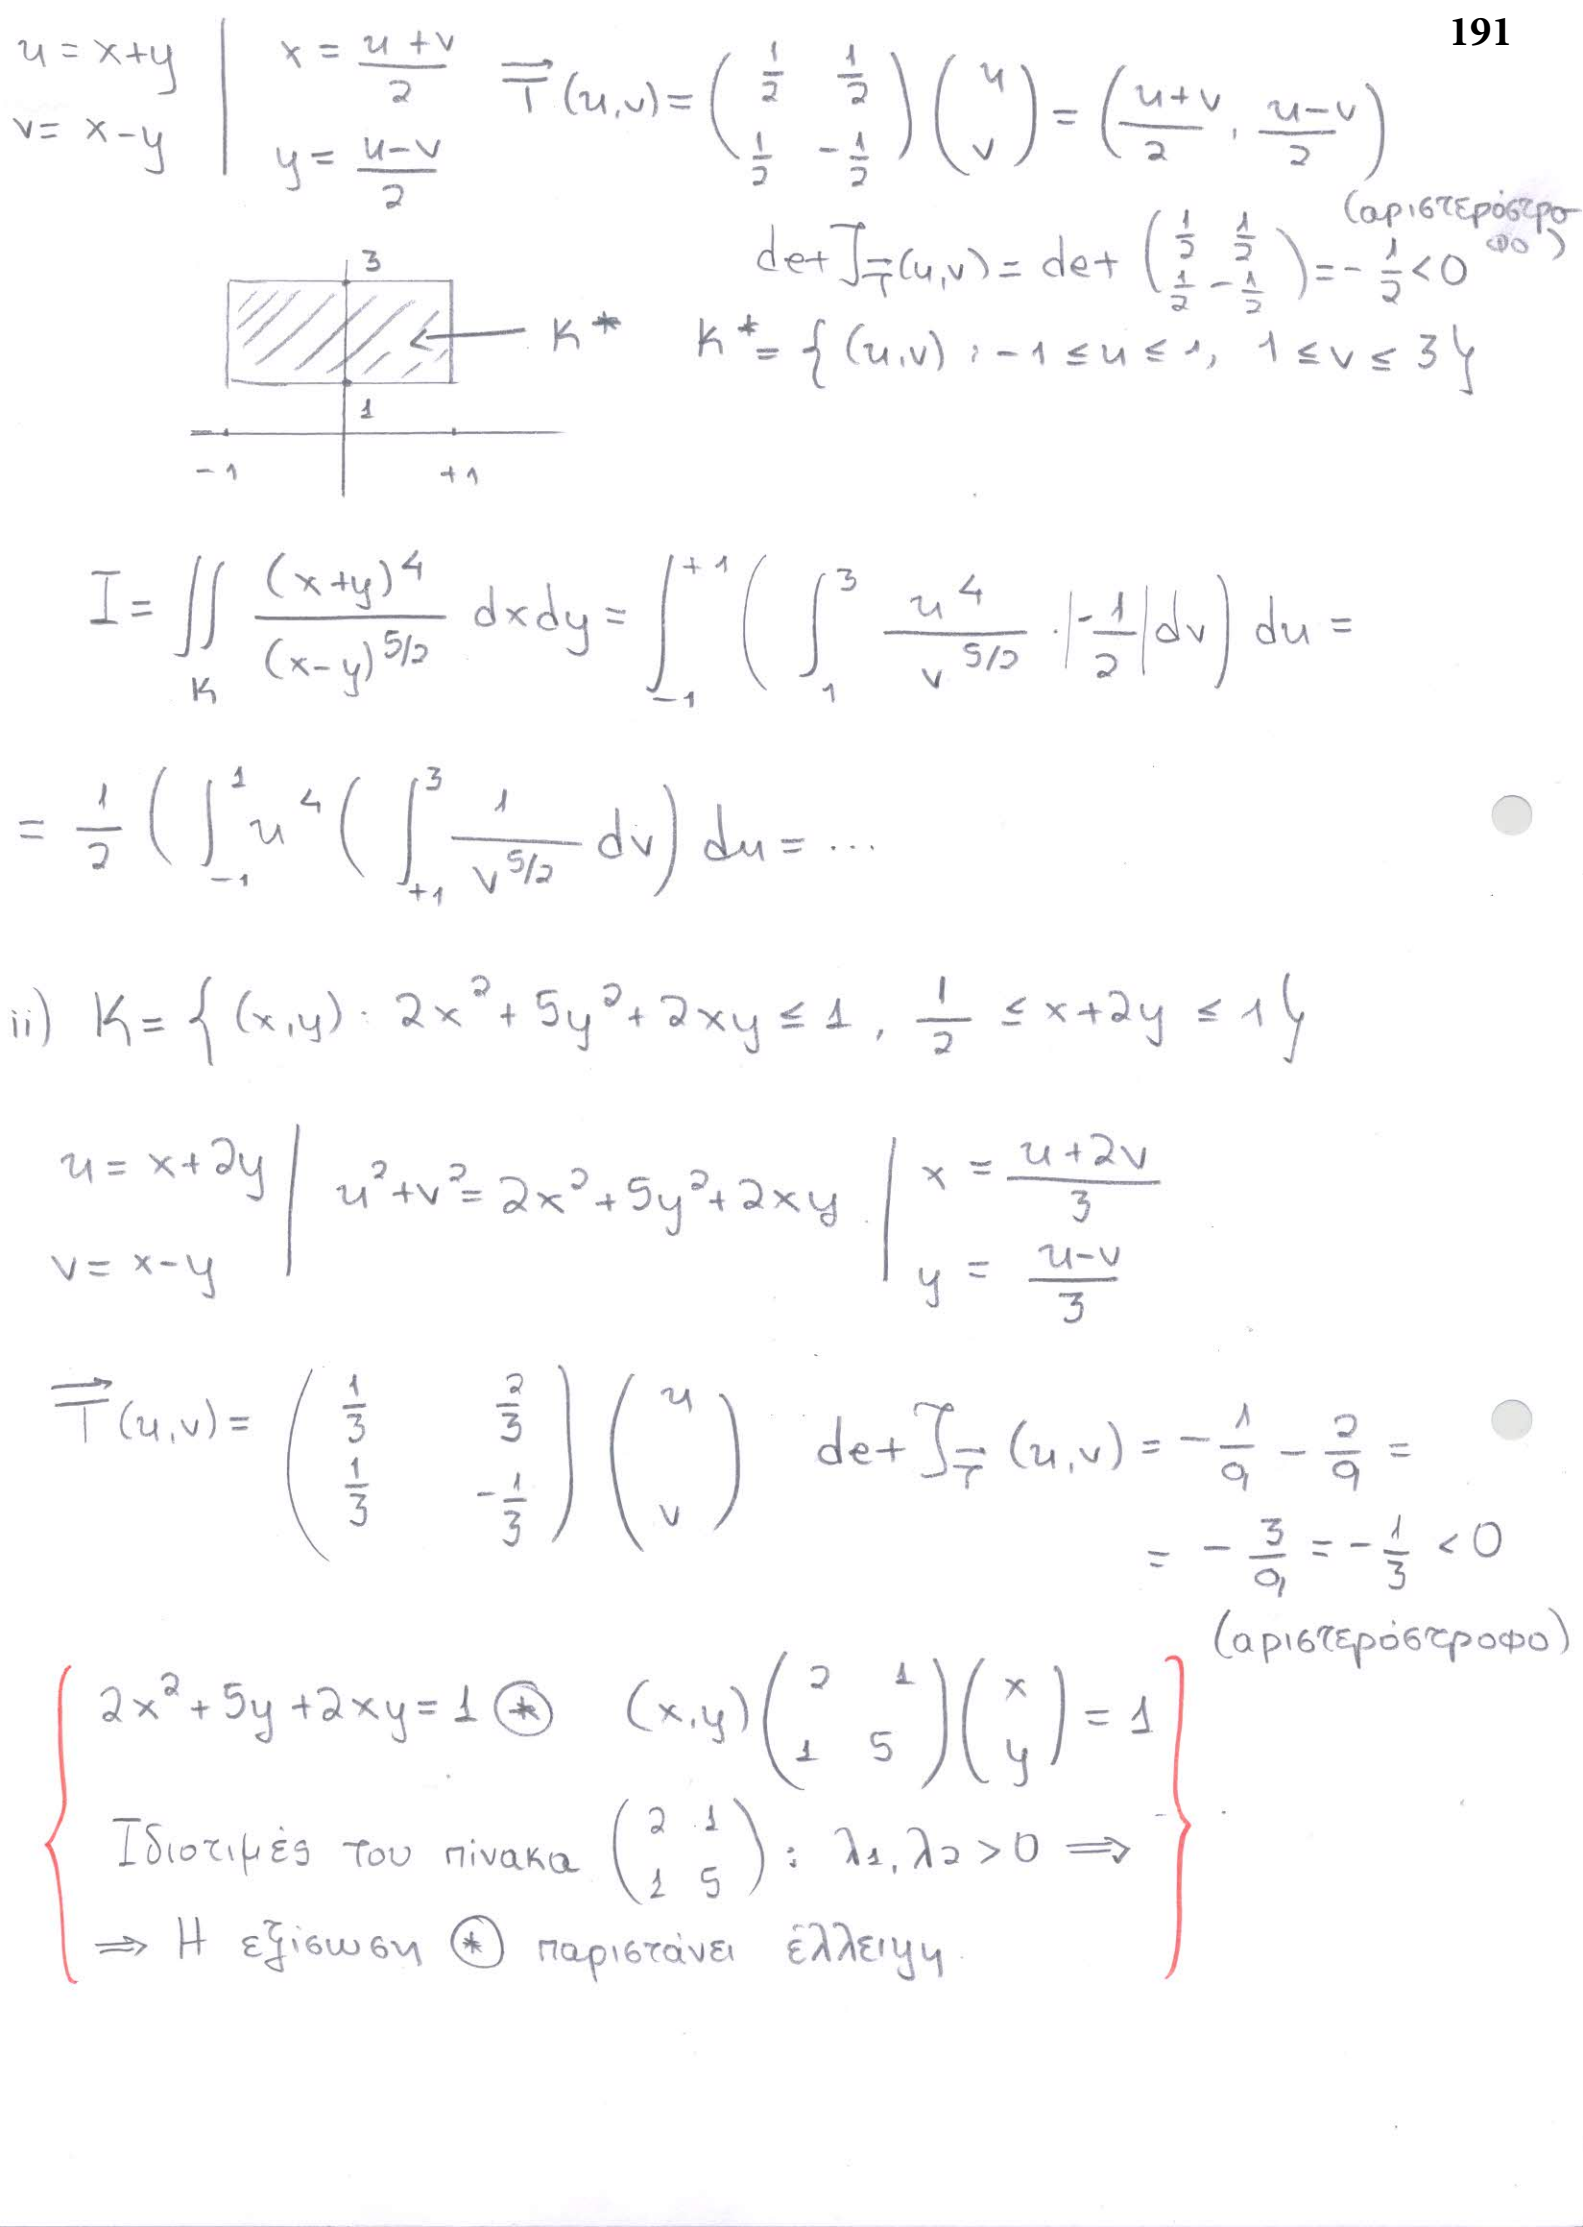 191
u = x+y | x = \frac{u+v}{2} \vec{T}(u,v) = \begin{pmatrix} \frac{1}{2} & \frac{1}{2} \\ \frac{1}{2} & -\frac{1}{2} \end{pmatrix} \begin{pmatrix} u \\ v \end{pmatrix} = \left( \frac{u+v}{2}, \frac{u-v}{2} \right)
v = x-y | y = \frac{u-v}{2}
(αριστερόστροφο)
det J_{\vec{T}}(u,v) = det \begin{pmatrix} \frac{1}{2} & \frac{1}{2} \\ \frac{1}{2} & -\frac{1}{2} \end{pmatrix} = -\frac{1}{2} < 0
3
K* K* = { (u,v) : -1 ≤ u ≤ 1, 1 ≤ v ≤ 3 }
1
-1 +1
I = \iint_K \frac{(x+y)^4}{(x-y)^{5/2}} dxdy = \int_{-1}^{+1} \left( \int_1^3 \frac{u^4}{v^{5/2}} \cdot |-\frac{1}{2}| dv \right) du =
= \frac{1}{2} ( \int_{-1}^{1} u^4 ( \int_{+1}^{3} \frac{1}{v^{5/2}} dv ) du = ...
ii) K = { (x,y) : 2x² + 5y² + 2xy ≤ 1, \frac{1}{2} ≤ x+2y ≤ 1 }
u = x+2y | u²+v² = 2x²+5y²+2xy | x = \frac{u+2v}{3}
v = x-y | y = \frac{u-v}{3}
\vec{T}(u,v) = \begin{pmatrix} \frac{1}{3} & \frac{2}{3} \\ \frac{1}{3} & -\frac{1}{3} \end{pmatrix} \begin{pmatrix} u \\ v \end{pmatrix} det J_{\vec{T}}(u,v) = -\frac{1}{9} - \frac{2}{9} =
= -\frac{3}{9} = -\frac{1}{3} < 0
(αριστερόστροφο)
2x² + 5y + 2xy = 1 (*) (x,y) \begin{pmatrix} 2 & 1 \\ 1 & 5 \end{pmatrix} \begin{pmatrix} x \\ y \end{pmatrix} = 1
Ιδιοτιμές του πίνακα \begin{pmatrix} 2 & 1 \\ 1 & 5 \end{pmatrix} : λ₁, λ₂ > 0 ⇒
⇒ Η εξίσωση (*) παριστάνει έλλειψη.